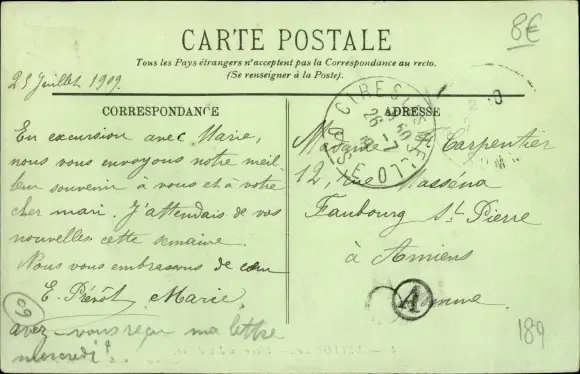 8€
CARTE POSTALE
Tous les Pays étrangers n'acceptent pas la Correspondance au recto.
(Se renseigner à la Poste).
25 Juillet 1909.
CORRESPONDANCE
En excursion avec Marie,
nous vous envoyons notre meil
leur souvenir à vous et à votre
cher mari. J'attendais de vos
nouvelles cette semaine.
Nous vous embrassons de cœur
E. Prévôt Marie
avez-vous reçu ma lettre
mercredi?
60
ADRESSE
Madame Carpentier
12, rue Masséna
Faubourg St Pierre
à Amiens
Somme
A
189